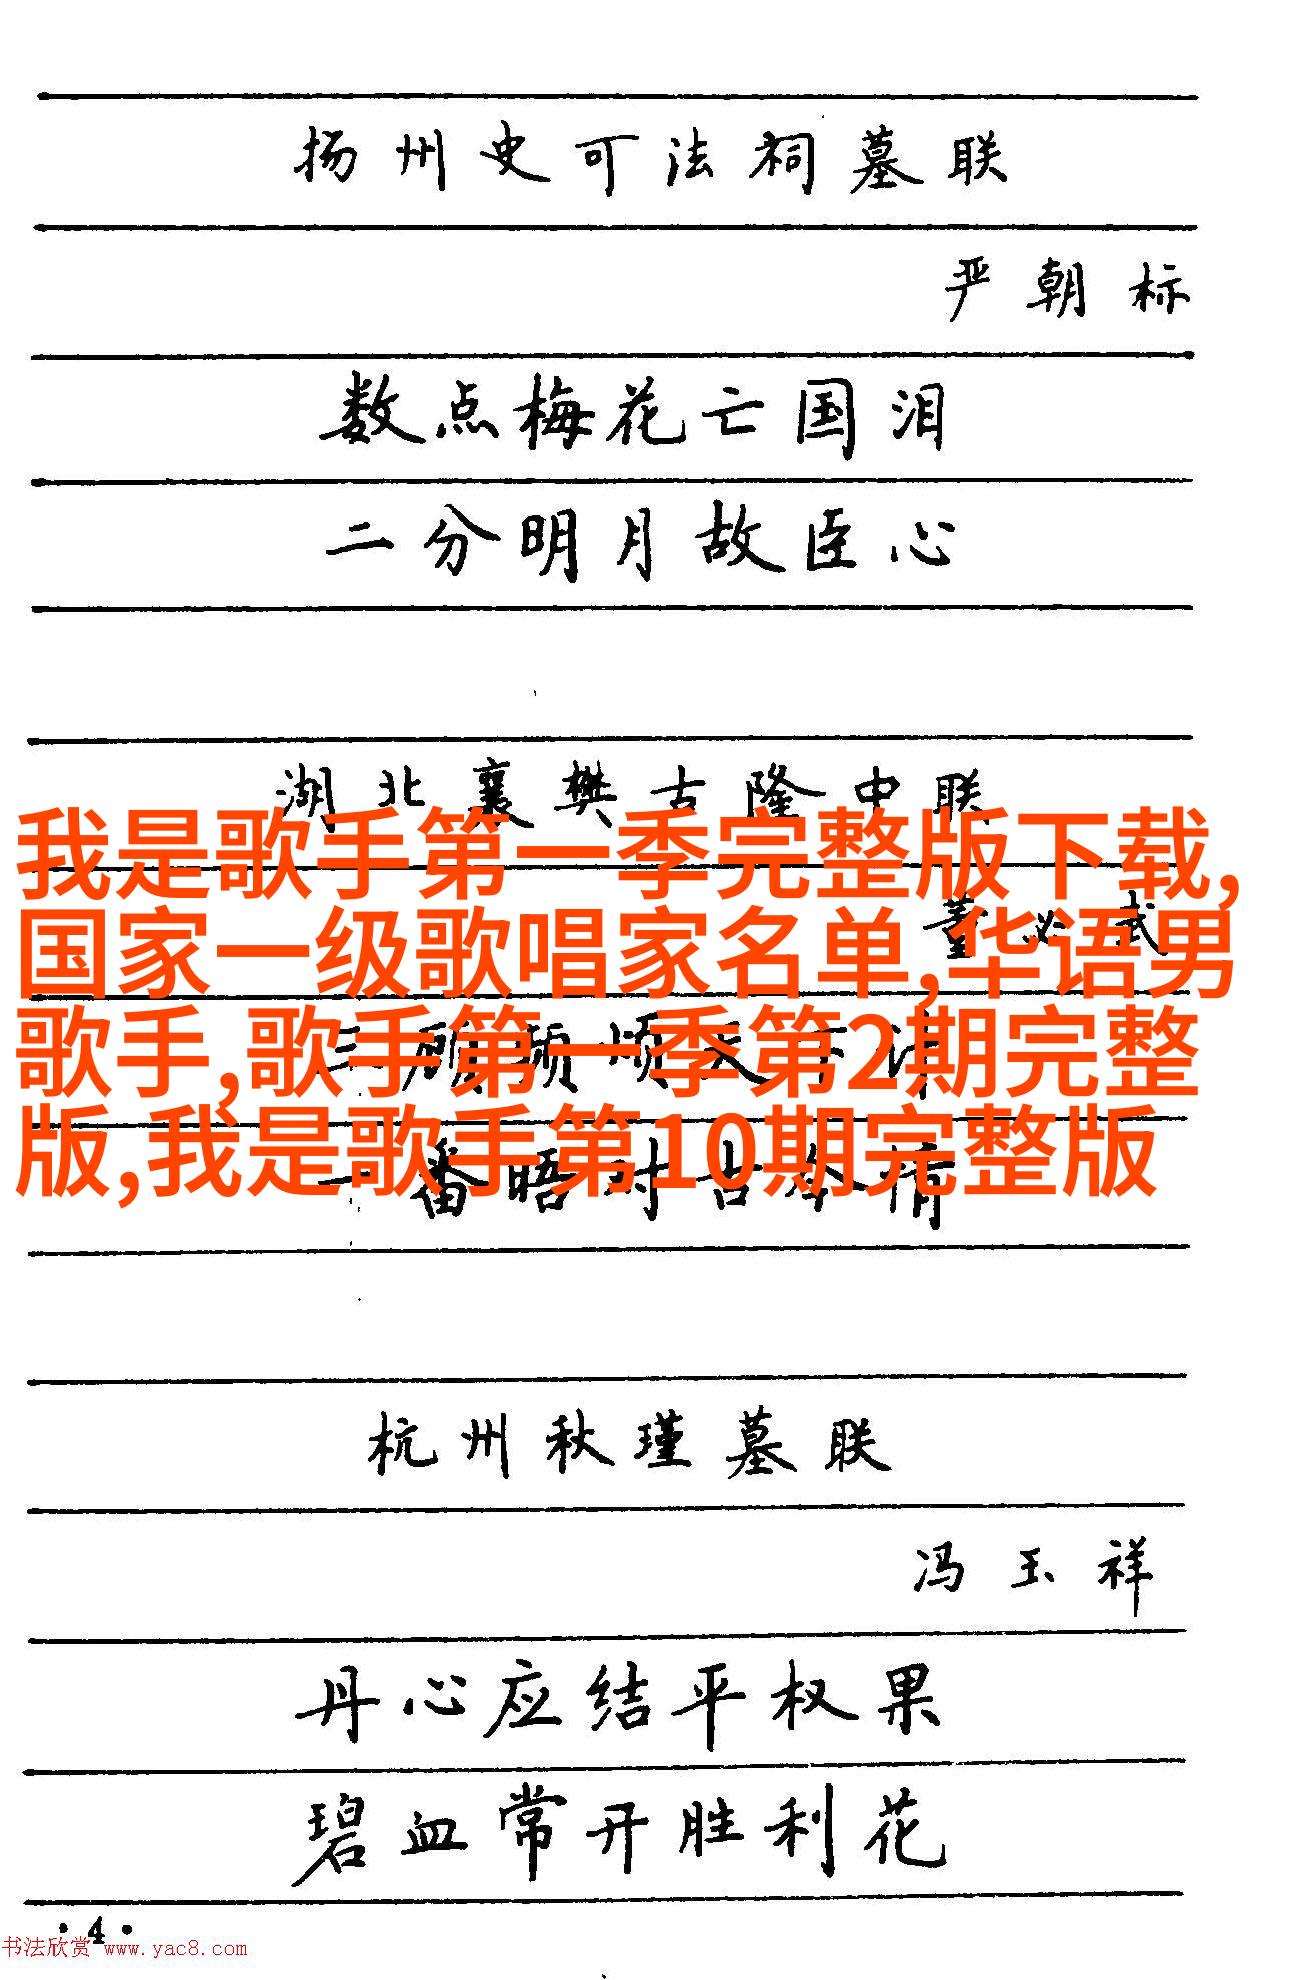 扬州史可法祠墓联
严朝标
数点梅花亡国泪
二分明月故臣心
湖北襄樊古隆中联
我是歌手第一季完整版下载,
董必武
国家一级歌唱家名单,华语男
三顾频烦天下计
歌手,歌手第一季第2期完整
一番晤对古今情
版,我是歌手第10期完整版
杭州秋瑾墓联
冯玉祥
丹心应结平权果
碧血常开胜利花
·4·
书法欣赏 www.yac8.com